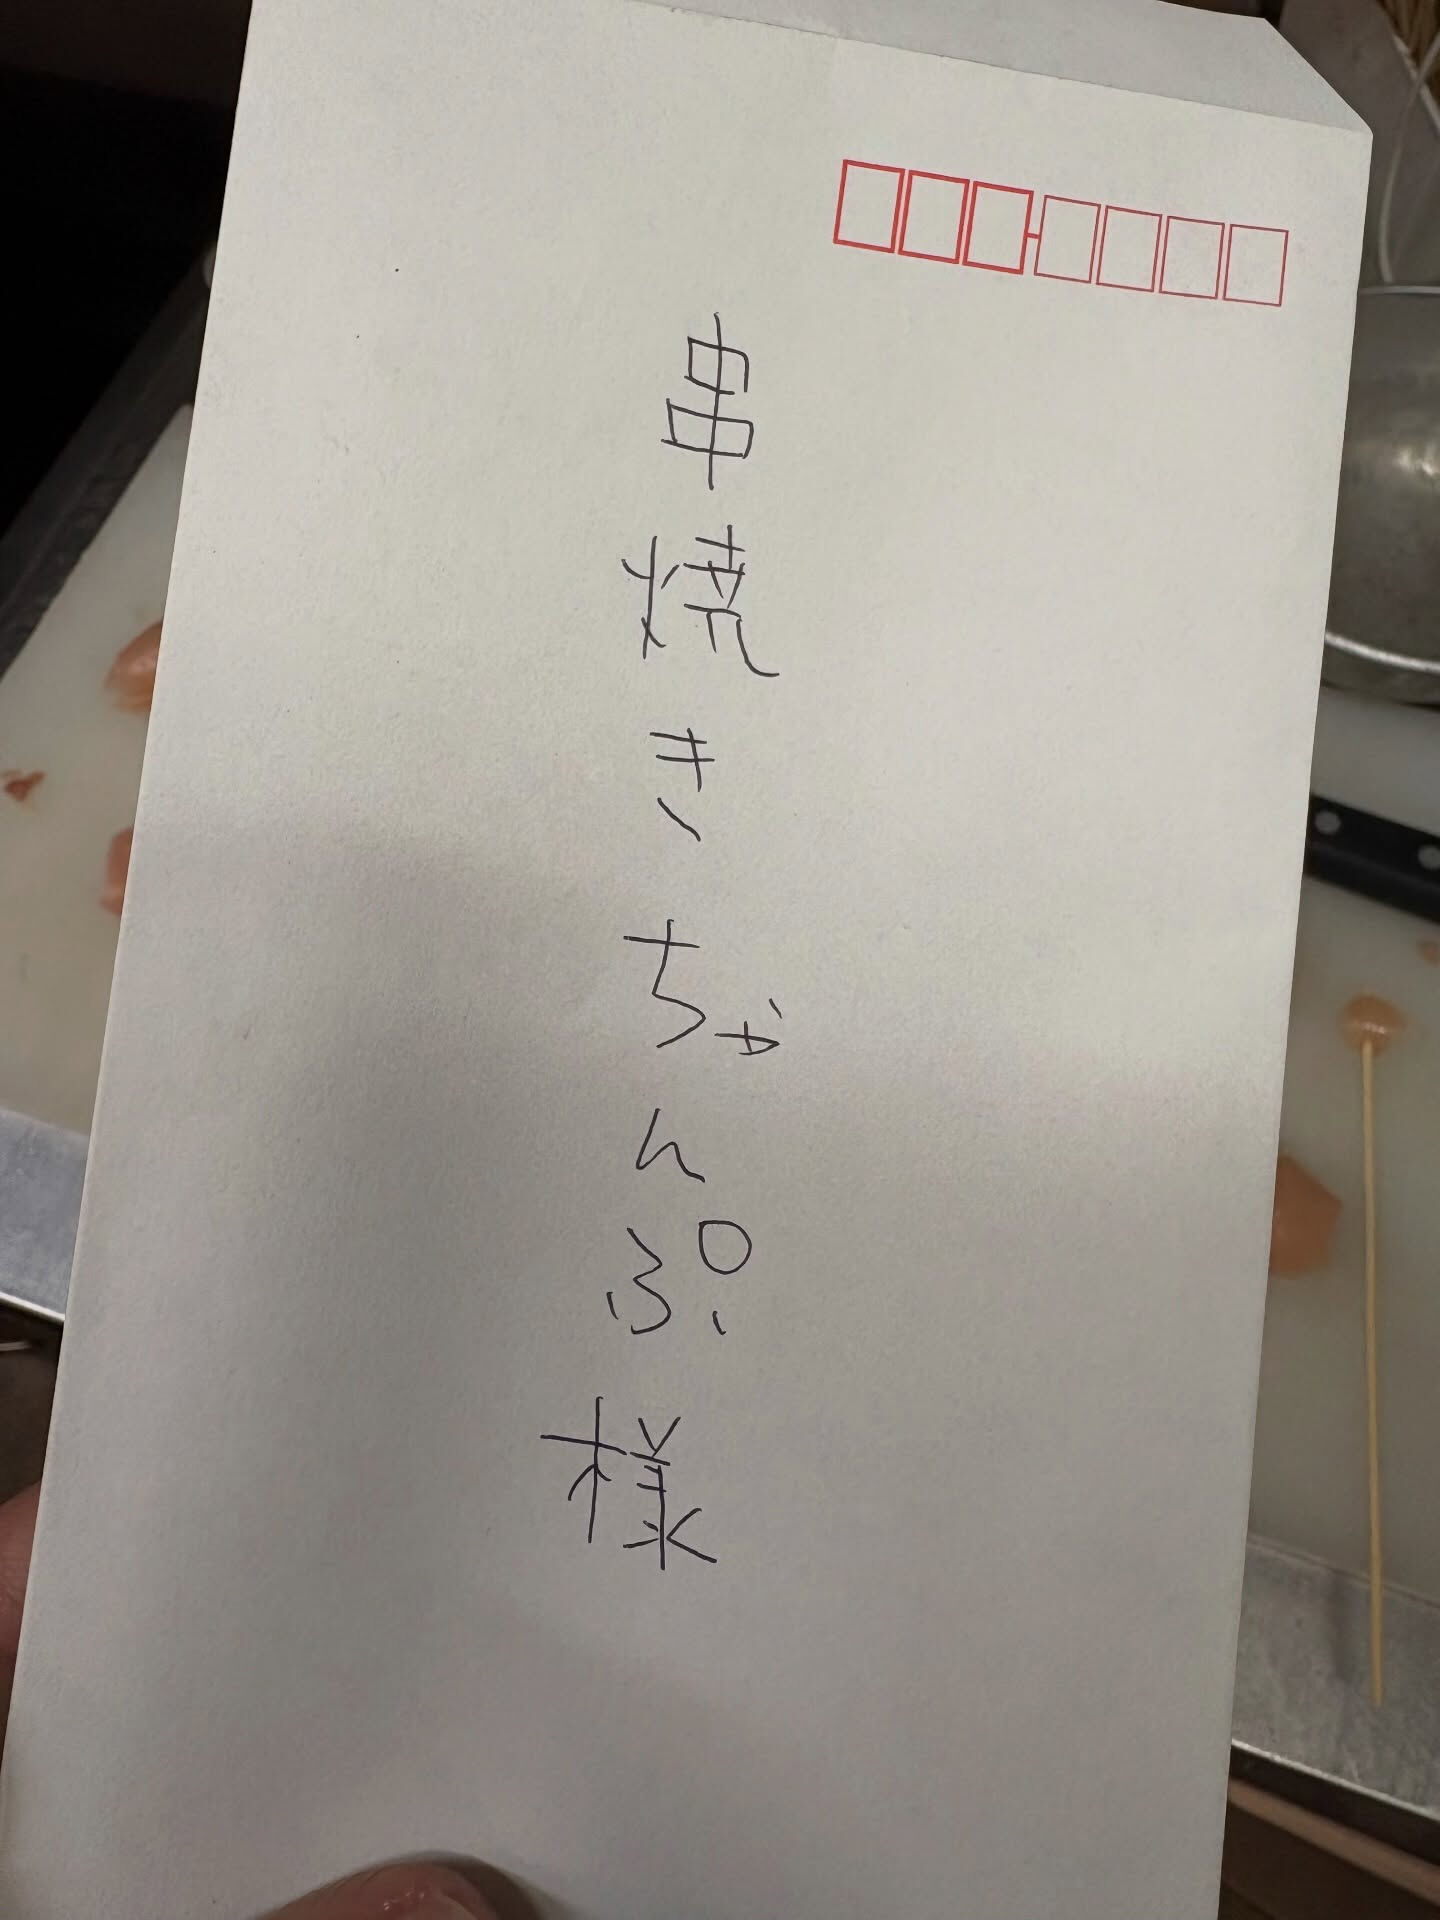 串焼きちゃんぷ様